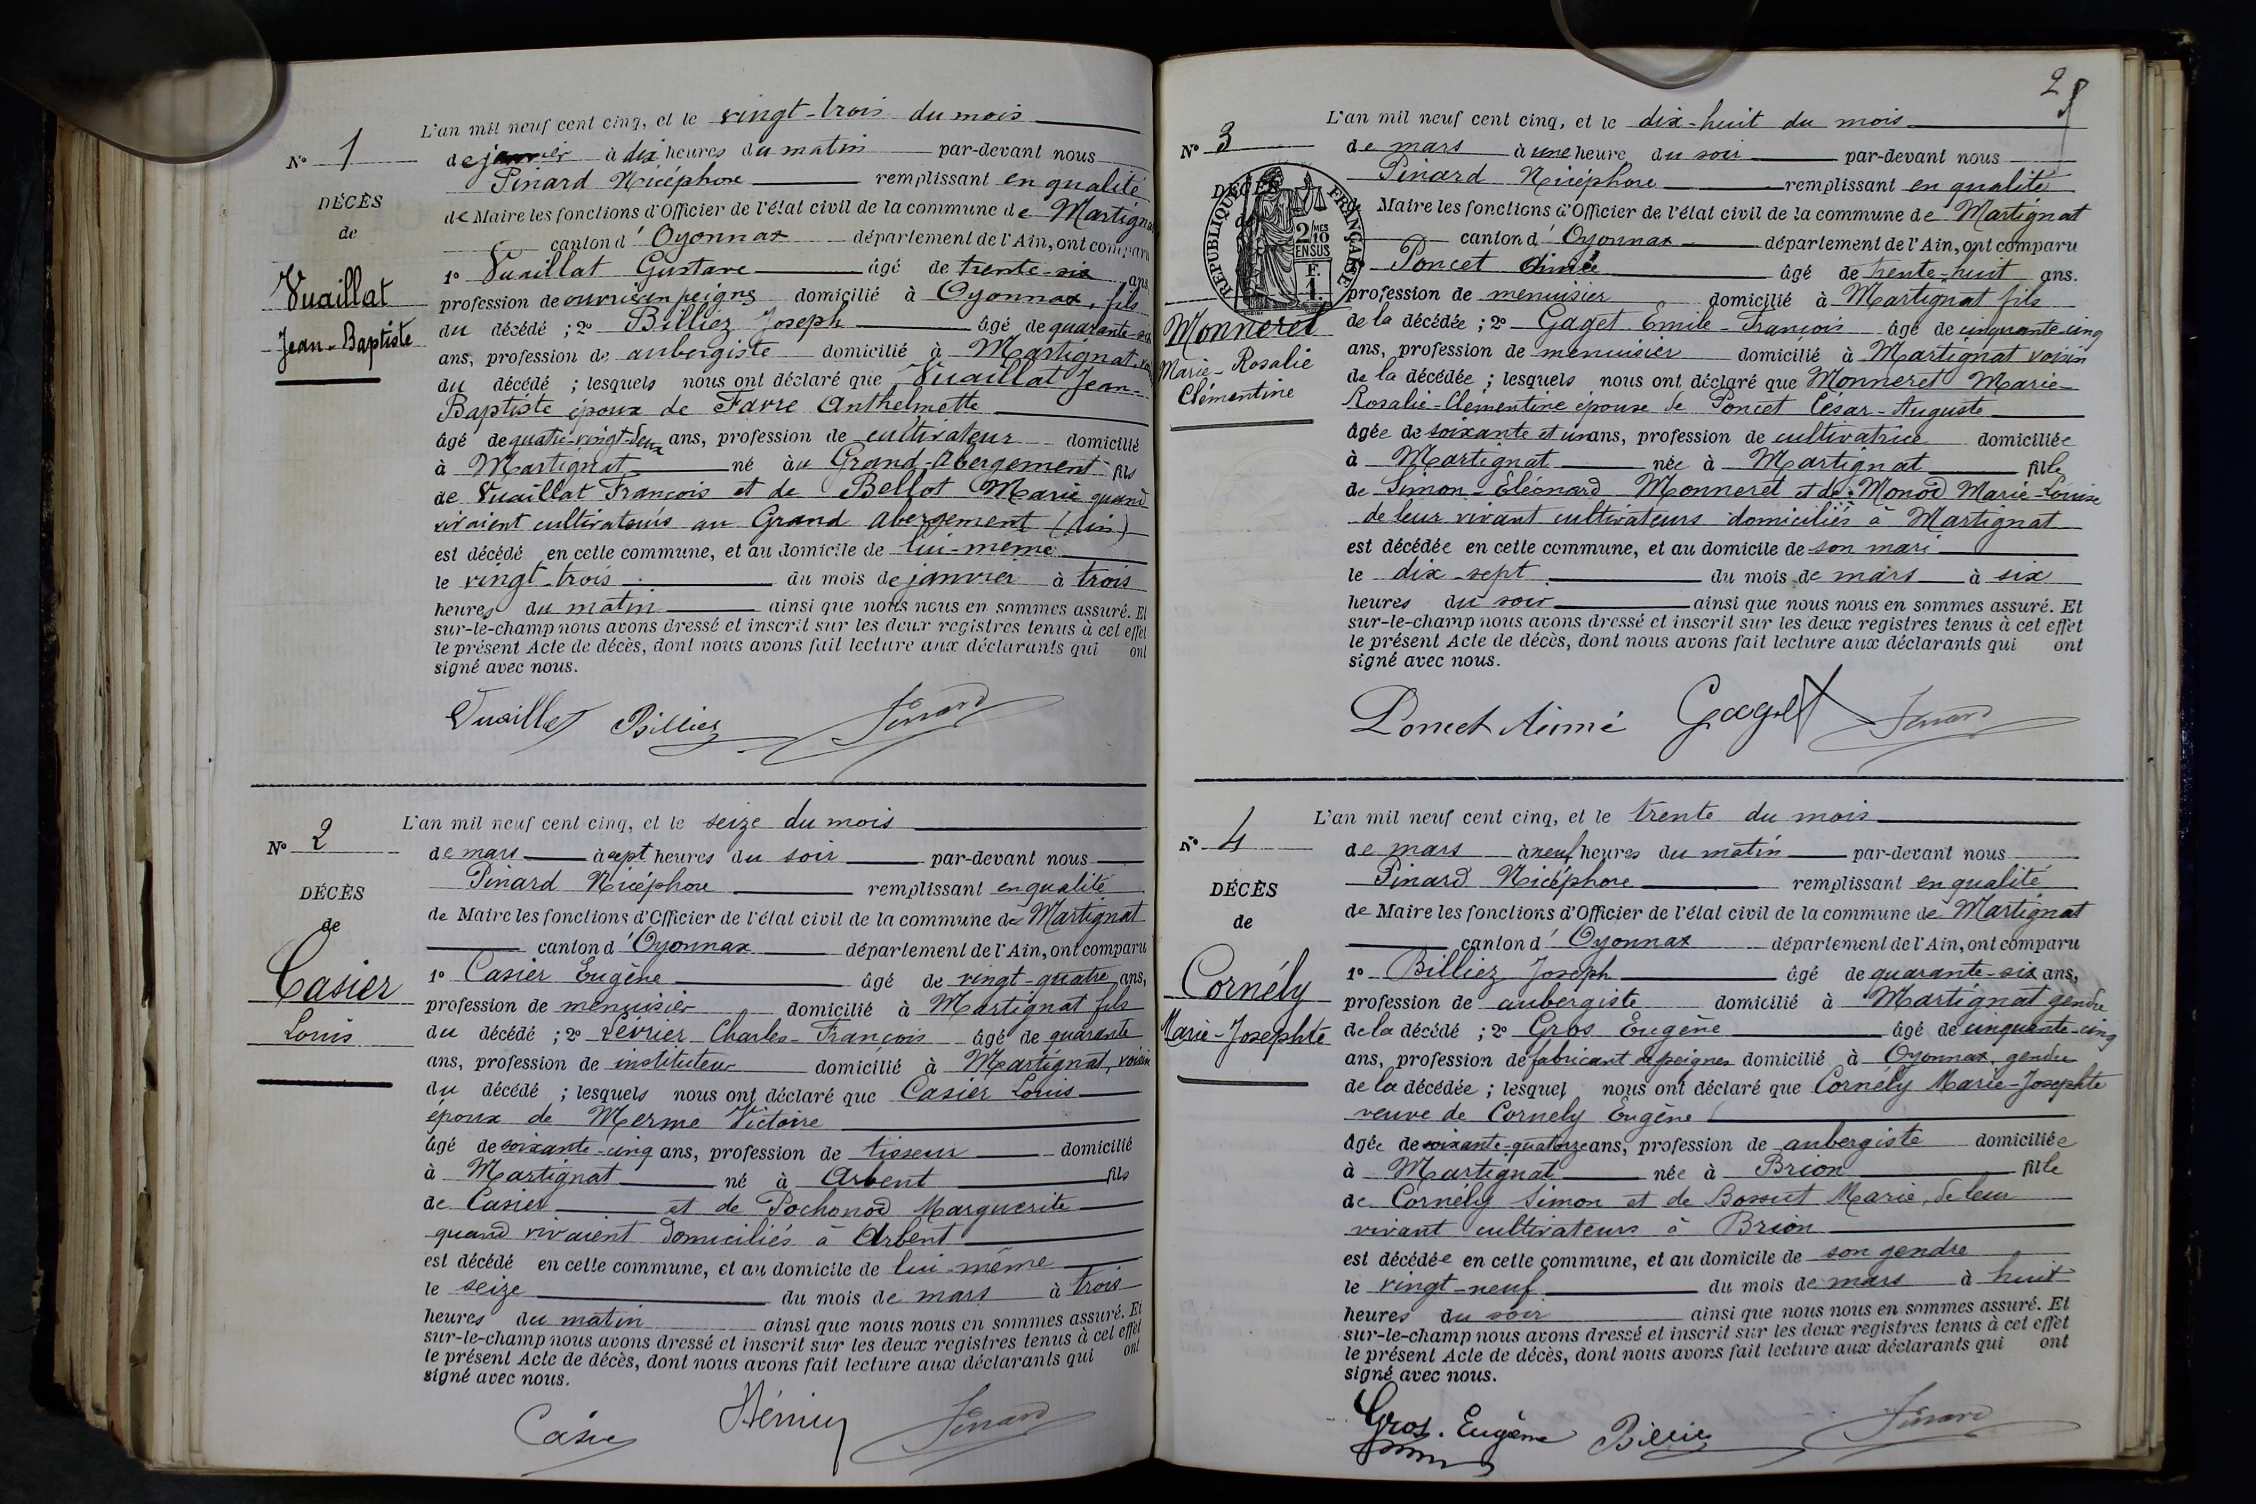 N° 1
DÉCÈS
de
Vuaillat
Jean-Baptiste
L'an mil neuf cent cinq, et le vingt-trois du mois
de janvier à dix heures du matin par-devant nous
Pinard Nicéphore remplissant en qualité
de Maire les fonctions d'Officier de l'état civil de la commune de Martignat
canton d'Oyonnax département de l'Ain, ont comparu
1° Vuaillat Gustave âgé de trente-six ans,
profession de ouvrier en peignes domicilié à Oyonnax, fils
du décédé ; 2° Billiez Joseph âgé de quarante-six
ans, profession de aubergiste domicilié à Martignat,
du décédé ; lesquels nous ont déclaré que Vuaillat Jean-
Baptiste époux de Favre Anthelmette
âgé de quatre-vingt-deux ans, profession de cultivateur domicilié
à Martignat né au Grand-Abergement fils
de Vuaillat François et de Bellot Marie quand
vivaient cultivateurs au Grand Abergement (Ain)
est décédé en cette commune, et au domicile de lui-même
le vingt-trois du mois de janvier à trois
heures du matin ainsi que nous nous en sommes assuré. Et
sur-le-champ nous avons dressé et inscrit sur les deux registres tenus à cet effet
le présent Acte de décès, dont nous avons fait lecture aux déclarants qui ont
signé avec nous.
Vuaillat Billiez Pinard
N° 2
DÉCÈS
de
Casier
Louis
L'an mil neuf cent cinq, et le seize du mois
de mars à sept heures du soir par-devant nous
Pinard Nicéphore remplissant en qualité
de Maire les fonctions d'Officier de l'état civil de la commune de Martignat
canton d'Oyonnax département de l'Ain, ont comparu
1° Casier Eugène âgé de vingt-quatre ans,
profession de menuisier domicilié à Martignat fils
du décédé ; 2° Charles-François âgé de quarante
ans, profession de instituteur domicilié à Martignat, voisin
du décédé ; lesquels nous ont déclaré que Casier Louis
époux de Merme Victoire
âgé de soixante-cinq ans, profession de tisseur domicilié
à Martignat né à Arbent fils
de Casier et de Pochonod Marguerite
quand vivaient domiciliés à Arbent
est décédé en cette commune, et au domicile de lui-même
le seize du mois de mars à trois
heures du matin ainsi que nous nous en sommes assuré. Et
sur-le-champ nous avons dressé et inscrit sur les deux registres tenus à cet effet
le présent Acte de décès, dont nous avons fait lecture aux déclarants qui ont
signé avec nous.
Casier Pinard
2
N° 3
DÉCÈS
de
RÉPUBLIQUE FRANÇAISE
2 MES
10
EN SUS
F.
1.
Monneret
Marie-Rosalie
Clémentine
L'an mil neuf cent cinq, et le dix-huit du mois
de mars à une heure du soir par-devant nous
Pinard Nicéphore remplissant en qualité
Maire les fonctions d'Officier de l'état civil de la commune de Martignat
canton d'Oyonnax département de l'Ain, ont comparu
Poncet Aimé âgé de trente-huit ans.
profession de menuisier domicilié à Martignat fils
de la décédée ; 2° Gaget Emile-François âgé de cinquante-cinq
ans, profession de menuisier domicilié à Martignat voisin
de la décédée ; lesquels nous ont déclaré que Monneret Marie-
Rosalie-Clémentine épouse de Poncet César-Auguste
âgée de soixante et un ans, profession de cultivatrice domiciliée
à Martignat née à Martignat fille
de Simon-Eléonard Monneret et de Monod Marie-Louise
de leur vivant cultivateurs domiciliés à Martignat
est décédée en cette commune, et au domicile de son mari
le dix-sept du mois de mars à six
heures du soir ainsi que nous nous en sommes assuré. Et
sur-le-champ nous avons dressé et inscrit sur les deux registres tenus à cet effet
le présent Acte de décès, dont nous avons fait lecture aux déclarants qui ont
signé avec nous.
Poncet Aimé Gaget Pinard
N° 4
DÉCÈS
de
Cornély
Marie-Josephte
L'an mil neuf cent cinq, et le trente du mois
de mars à neuf heures du matin par-devant nous
Pinard Nicéphore remplissant en qualité
de Maire les fonctions d'Officier de l'état civil de la commune de Martignat
canton d'Oyonnax département de l'Ain, ont comparu
1° Billiez Joseph âgé de quarante-six ans,
profession de aubergiste domicilié à Martignat gendre
de la décédé ; 2° Gros Eugène âgé de cinquante-cinq
ans, profession de fabricant de peignes domicilié à Oyonnax, gendre
de la décédée ; lesquel nous ont déclaré que Cornély Marie-Josephte
veuve de Cornely Eugène
âgée de soixante-quatorze ans, profession de aubergiste domiciliée
à Martignat née à Brion fille
de Cornély Simon et de Bossut Marie, de leur
vivant cultivateurs à Brion
est décédée en cette commune, et au domicile de son gendre
le vingt-neuf du mois de mars à huit
heures du soir ainsi que nous nous en sommes assuré. Et
sur-le-champ nous avons dressé et inscrit sur les deux registres tenus à cet effet
le présent Acte de décès, dont nous avons fait lecture aux déclarants qui ont
signé avec nous.
Gros. Eugène Billiez Pinard